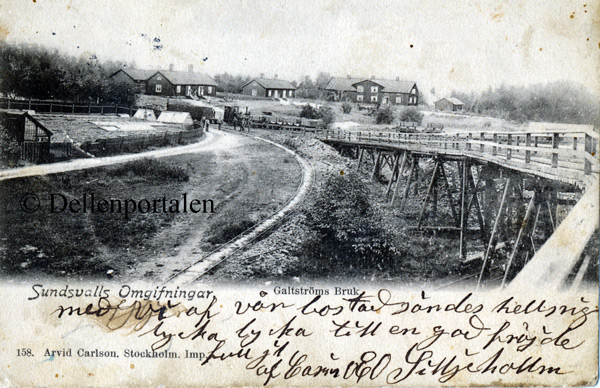 © Dellenportalen
Sundsvalls Omgifningar.
Galtströms Bruk
med vy af vår bostad sändes helsning
lycka lycka till en god fröjde
158. Arvid Carlson. Stockholm. Imp.
full jul
af